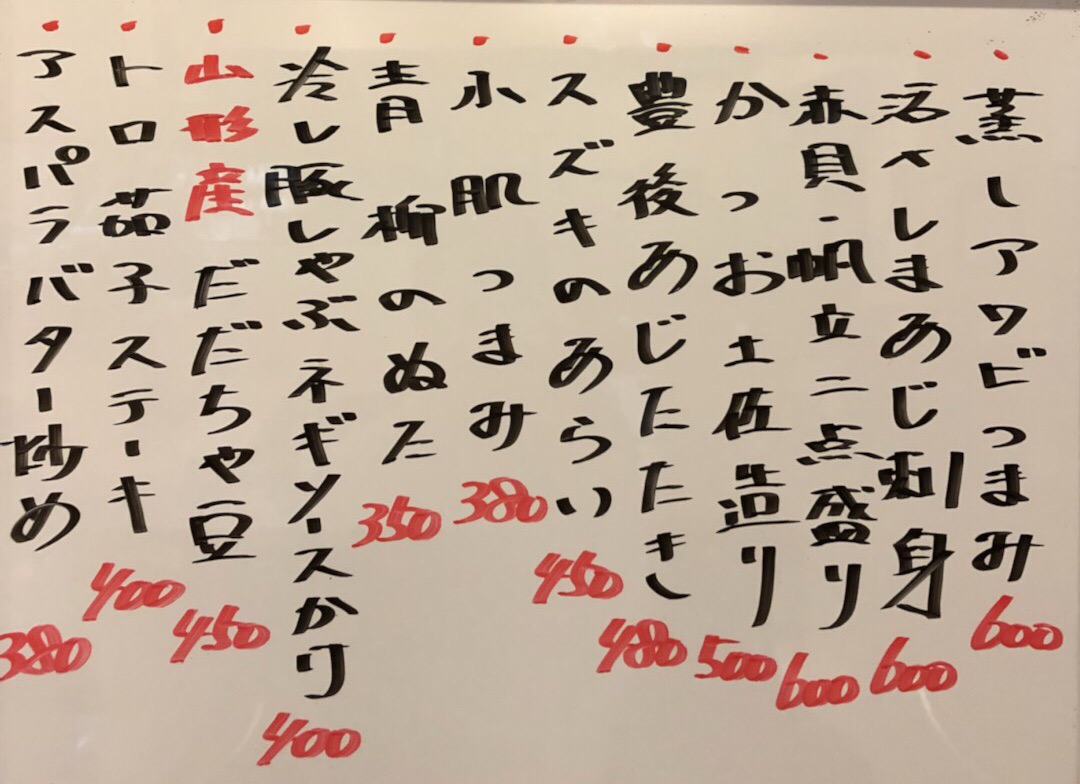 蒸しアワビつまみ 600
活〆しまあじ刺身 600
赤貝・帆立二点盛り 600
かつお土佐造り 500
豊後あじたたき 480
スズキのあらい 450
小肌つまみ 380
青柳のぬた 350
冷し豚しゃぶネギソースかけ 400
山形産だだちゃ豆 450
トロ茄子ステーキ 400
アスパラバター炒め 380